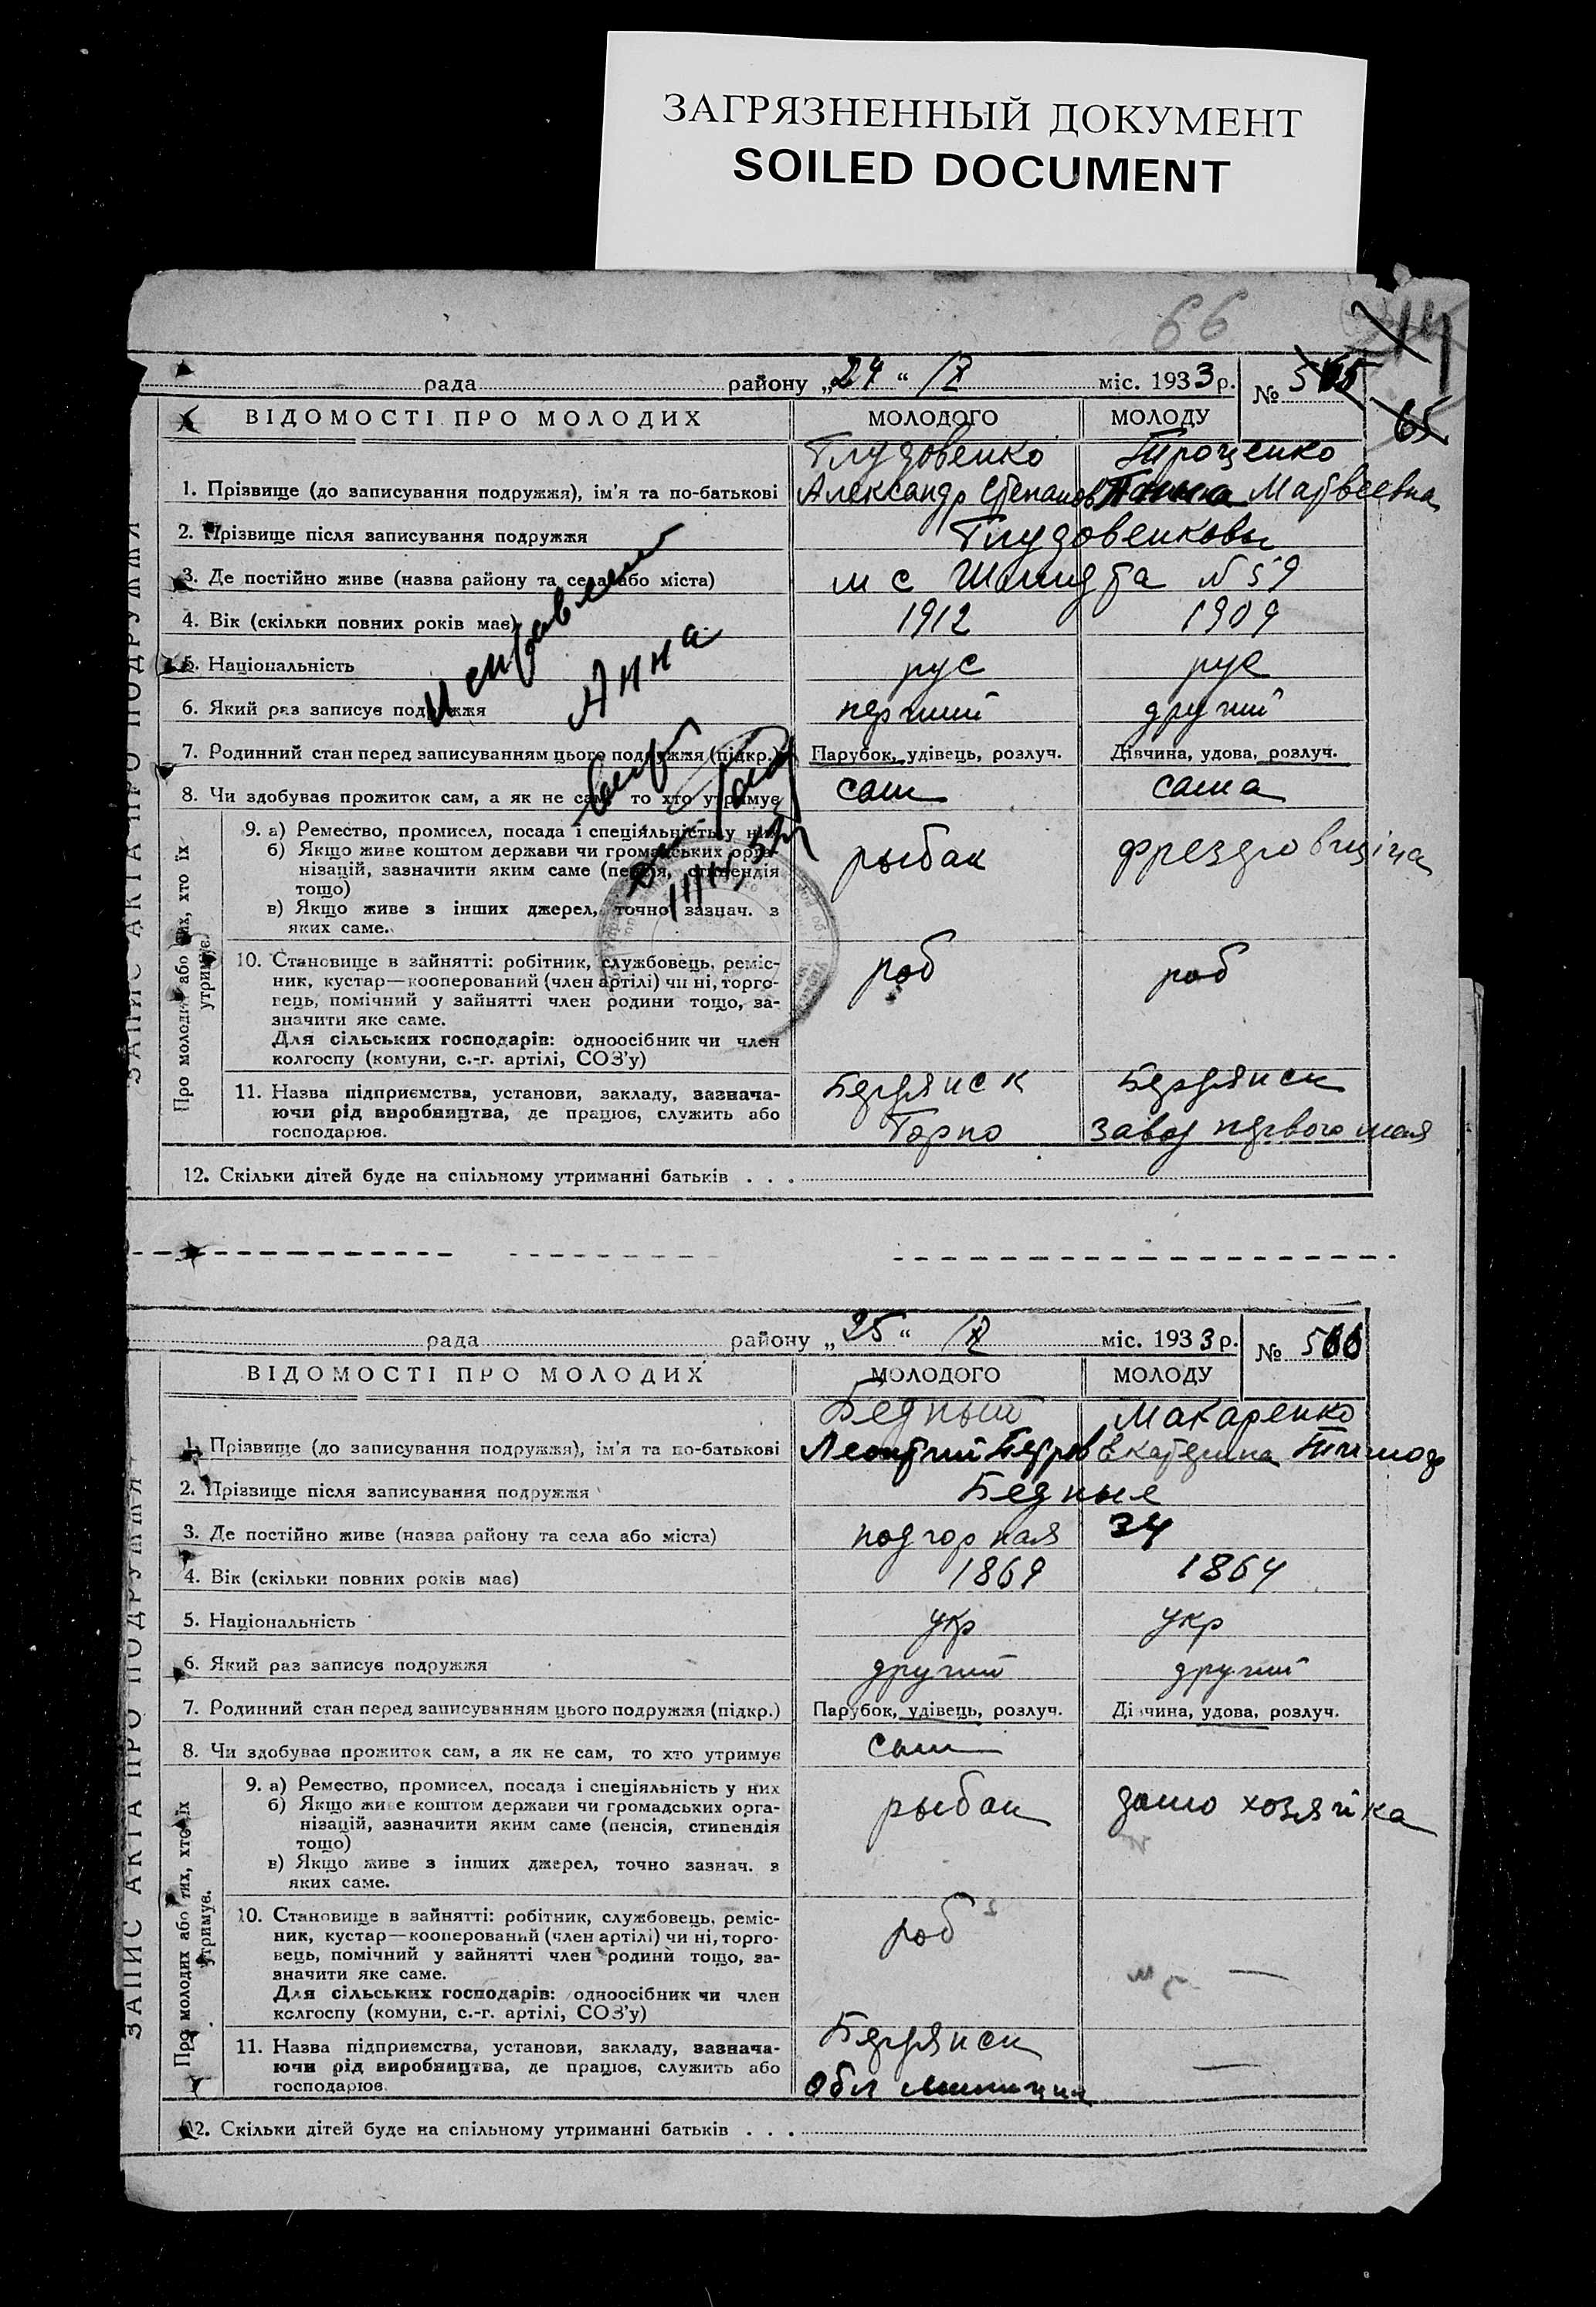 ЗАГРЯЗНЕННЫЙ ДОКУМЕНТ
SOILED DOCUMENT
66
65
рада района „24“ IX міс. 1933 р. № 565
ВІДОМОСТІ ПРО МОЛОДИХ МОЛОДОГО МОЛОДУ
Глудовенко Троценко
1. Прізвище (до записування подружжя), ім'я та по-батькові Александр Степанов Матвеевна
2. Прізвище після записування подружжя Глудовенковы
3. Де постійно живе (назва району та села або міста) м с Шмидта N 59
4. Вік (скільки повних років має) 1912 1909
5. Національність рус рус
6. Який раз записує подружжя перший другий
7. Родинний стан перед записуванням цього подружжя (підкр.) Парубок, удівець, розлуч. Дівчина, удова, розлуч.
8. Чи здобував прожиток сам, а як не сам, то хто утримує сам сама
исправлено
Анна
ЗАПИС АКТА ПРО ПОДРУЖЖЯ
Про молодих або тих, хто їх утримує.
9. а) Ремество, промисел, посада і спеціяльність у них
б) Якщо живе коштом держави чи громадських орга-
нізацій, зазначити яким саме (пенсія, стипендія
тощо)
в) Якщо живе з інших джерел, точно зазнач. з
яких саме.
рыбак
10. Становище в зайнятті: робітник, службовець, реміс-
ник, кустар—кооперований (член артілі) чи ні, торго-
вець, помічний у зайнятті член родини тощо, за-
значити яке саме.
Для сільських господарів: одноосібник чи член
колгоспу (комуни, с.-г. артілі, СОЗ'у)
роб роб
11. Назва підприємства, установи, закладу, зазнача-
ючи рід виробництва, де працює, служить або
господарює.
Бердянск Бердянск
Горпо Завод первого мая
12. Скільки дітей буде на спільному утриманні батьків . . .
рада району „25“ IX міс. 1933 р. № 566
ВІДОМОСТІ ПРО МОЛОДИХ МОЛОДОГО МОЛОДУ
Бедный Макаренко
1. Прізвище (до записування подружжя), ім'я та по-батькові Леонтий Петров Екатерина Тимоф
2. Прізвище після записування подружжя Бедные
3. Де постійно живе (назва району та села або міста) подгорная 34
4. Вік (скільки повних років має) 1869 1864
5. Національність укр укр
6. Який раз записує подружжя другий другий
7. Родинний стан перед записуванням цього подружжя (підкр.) Парубок, удівець, розлуч. Дівчина, удова, розлуч.
8. Чи здобував прожиток сам, а як не сам, то хто утримує сам
ЗАПИС АКТА ПРО ПОДРУЖЖЯ
Про молодих або тих, хто їх утримує.
9. а) Ремество, промисел, посада і спеціяльність у них
б) Якщо живе коштом держави чи громадських орга-
нізацій, зазначити яким саме (пенсія, стипендія
тощо)
в) Якщо живе з інших джерел, точно зазнач. з
яких саме.
рыбак домо хозяйка
10. Становище в зайнятті: робітник, службовець, реміс-
ник, кустар—кооперований (член артілі) чи ні, торго-
вець, помічний у зайнятті член родини тощо, за-
значити яке саме.
Для сільських господарів: одноосібник чи член
колгоспу (комуни, с.-г. артілі, СОЗ'у)
роб —
11. Назва підприємства, установи, закладу, зазнача-
ючи рід виробництва, де працює, служить або
господарює.
Бердянск —
Обл
12. Скільки дітей буде на спільному утриманні батьків . . .